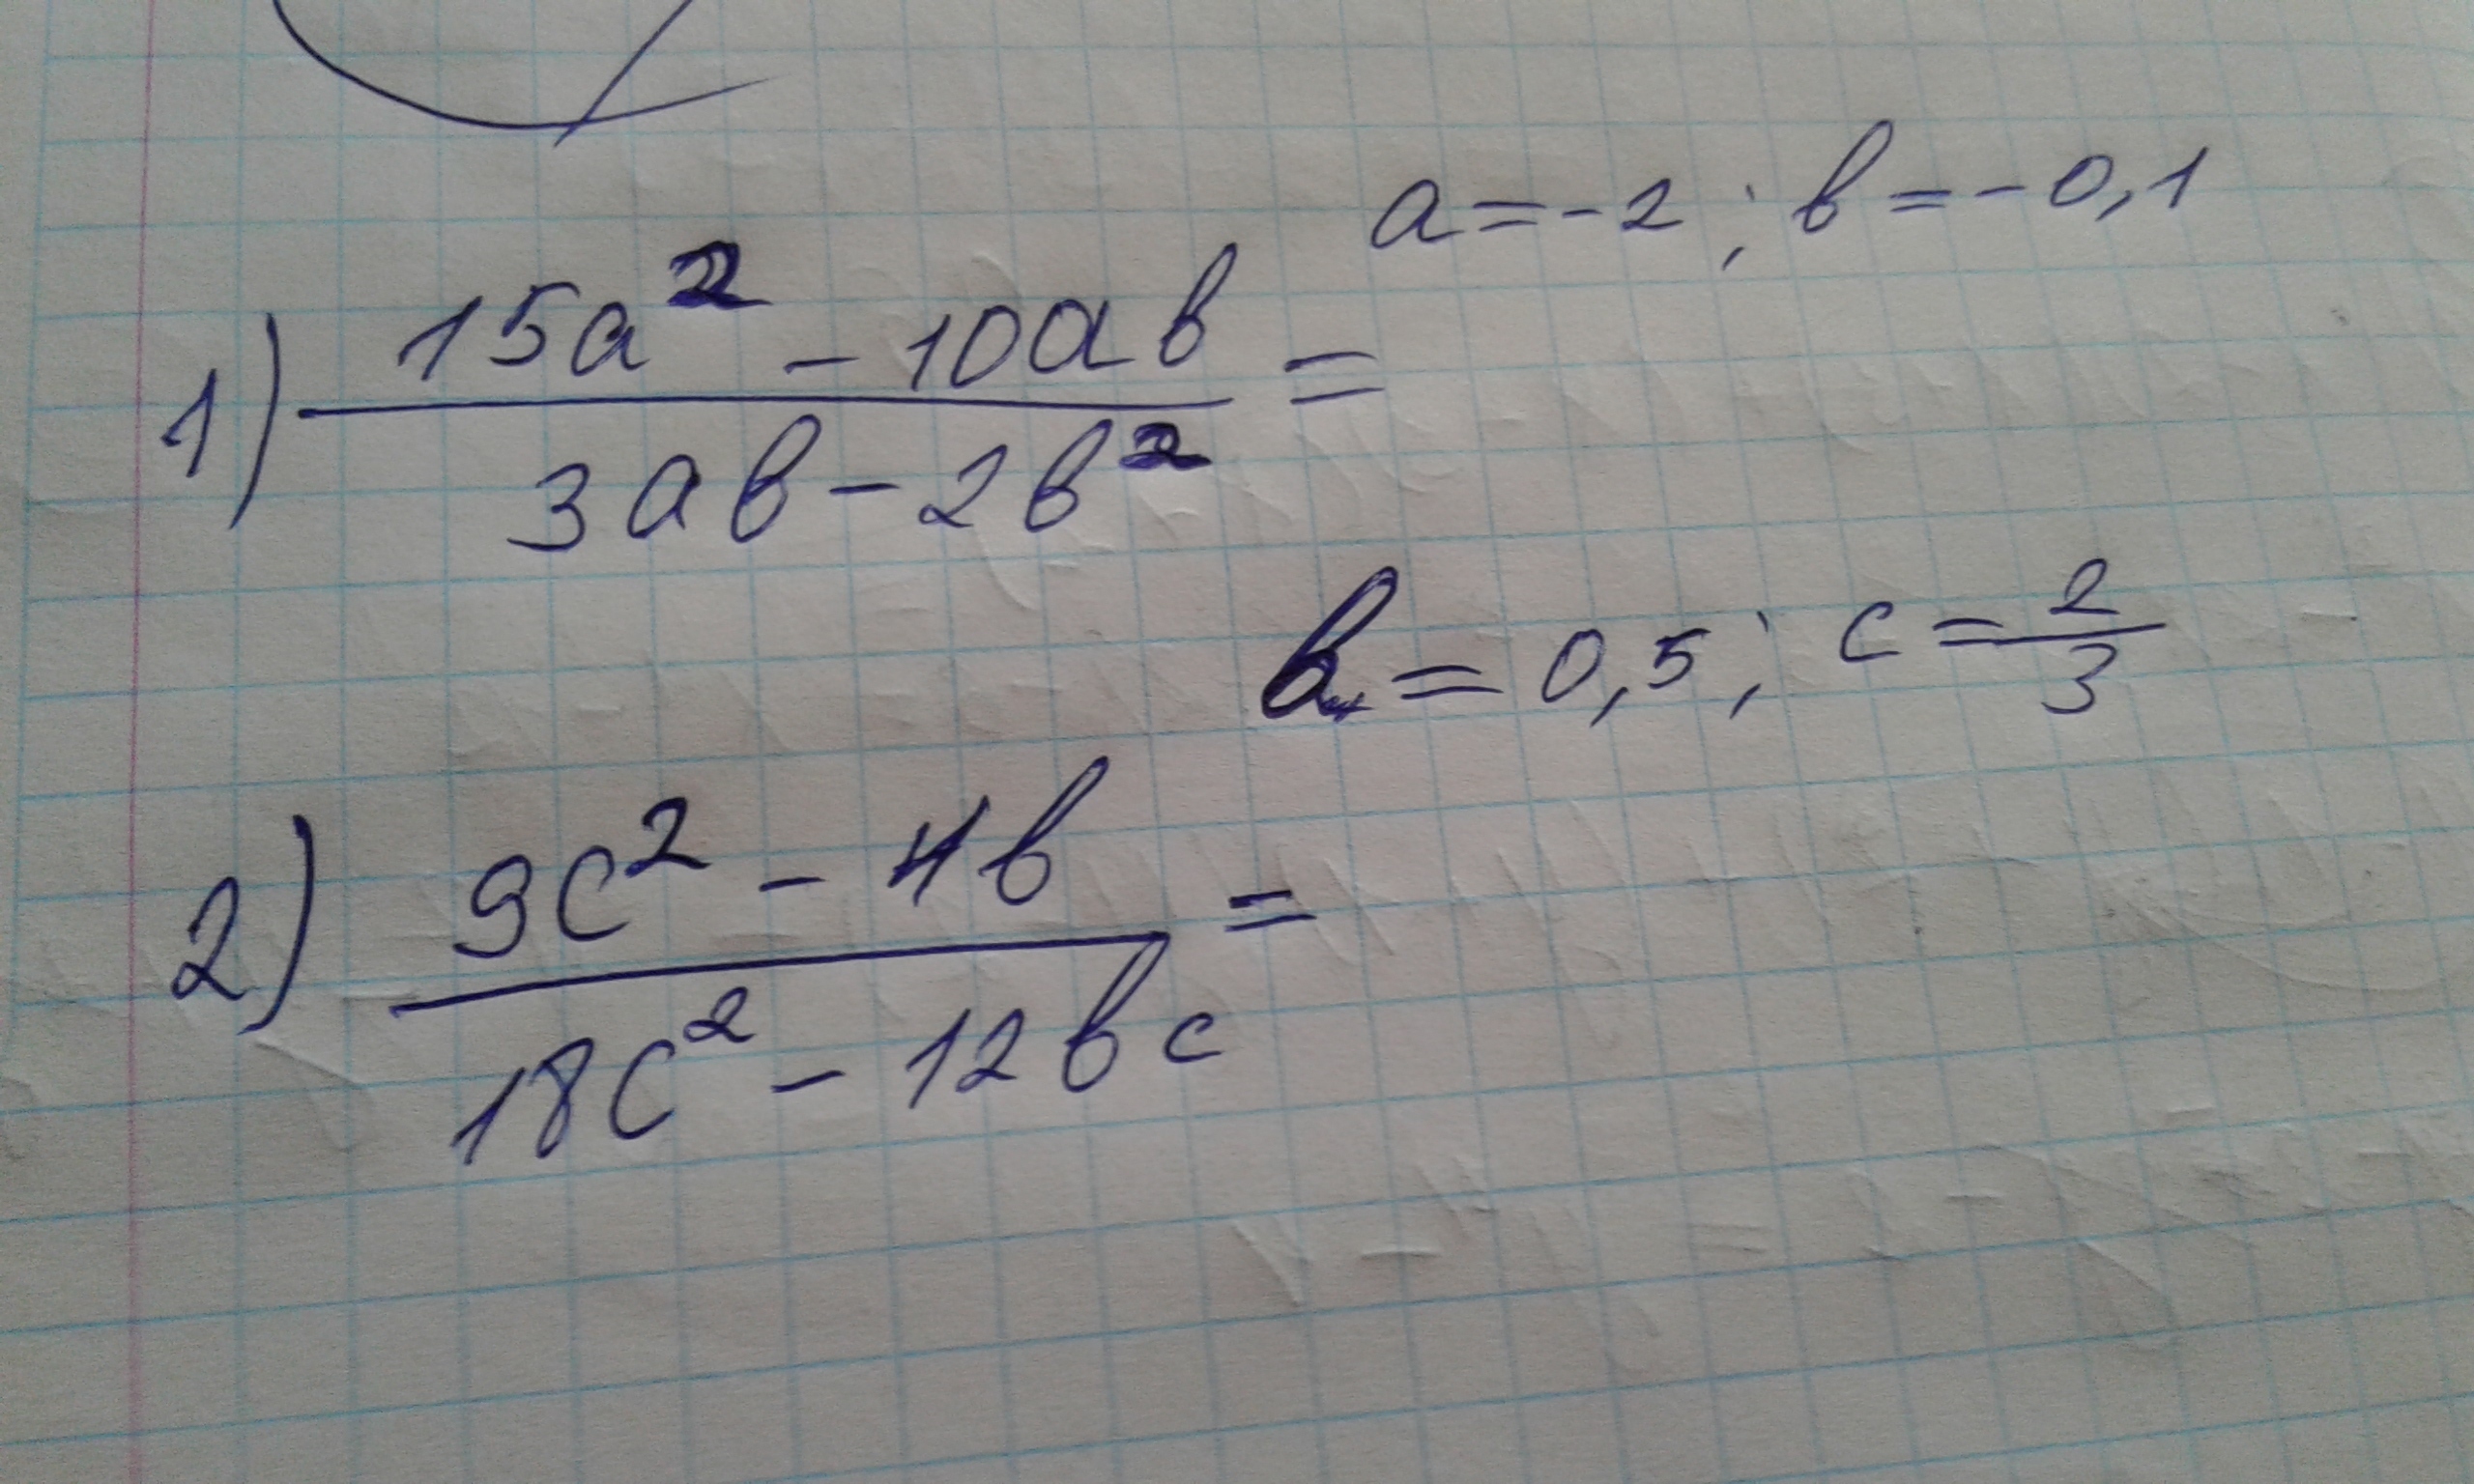 a = -2 ; в = -0,1
1) (15a² - 10aв)/(3aв - 2в²) =
в = 0,5 ; c = 2/3
2) (9c² - 4в)/(18c² - 12вc) =